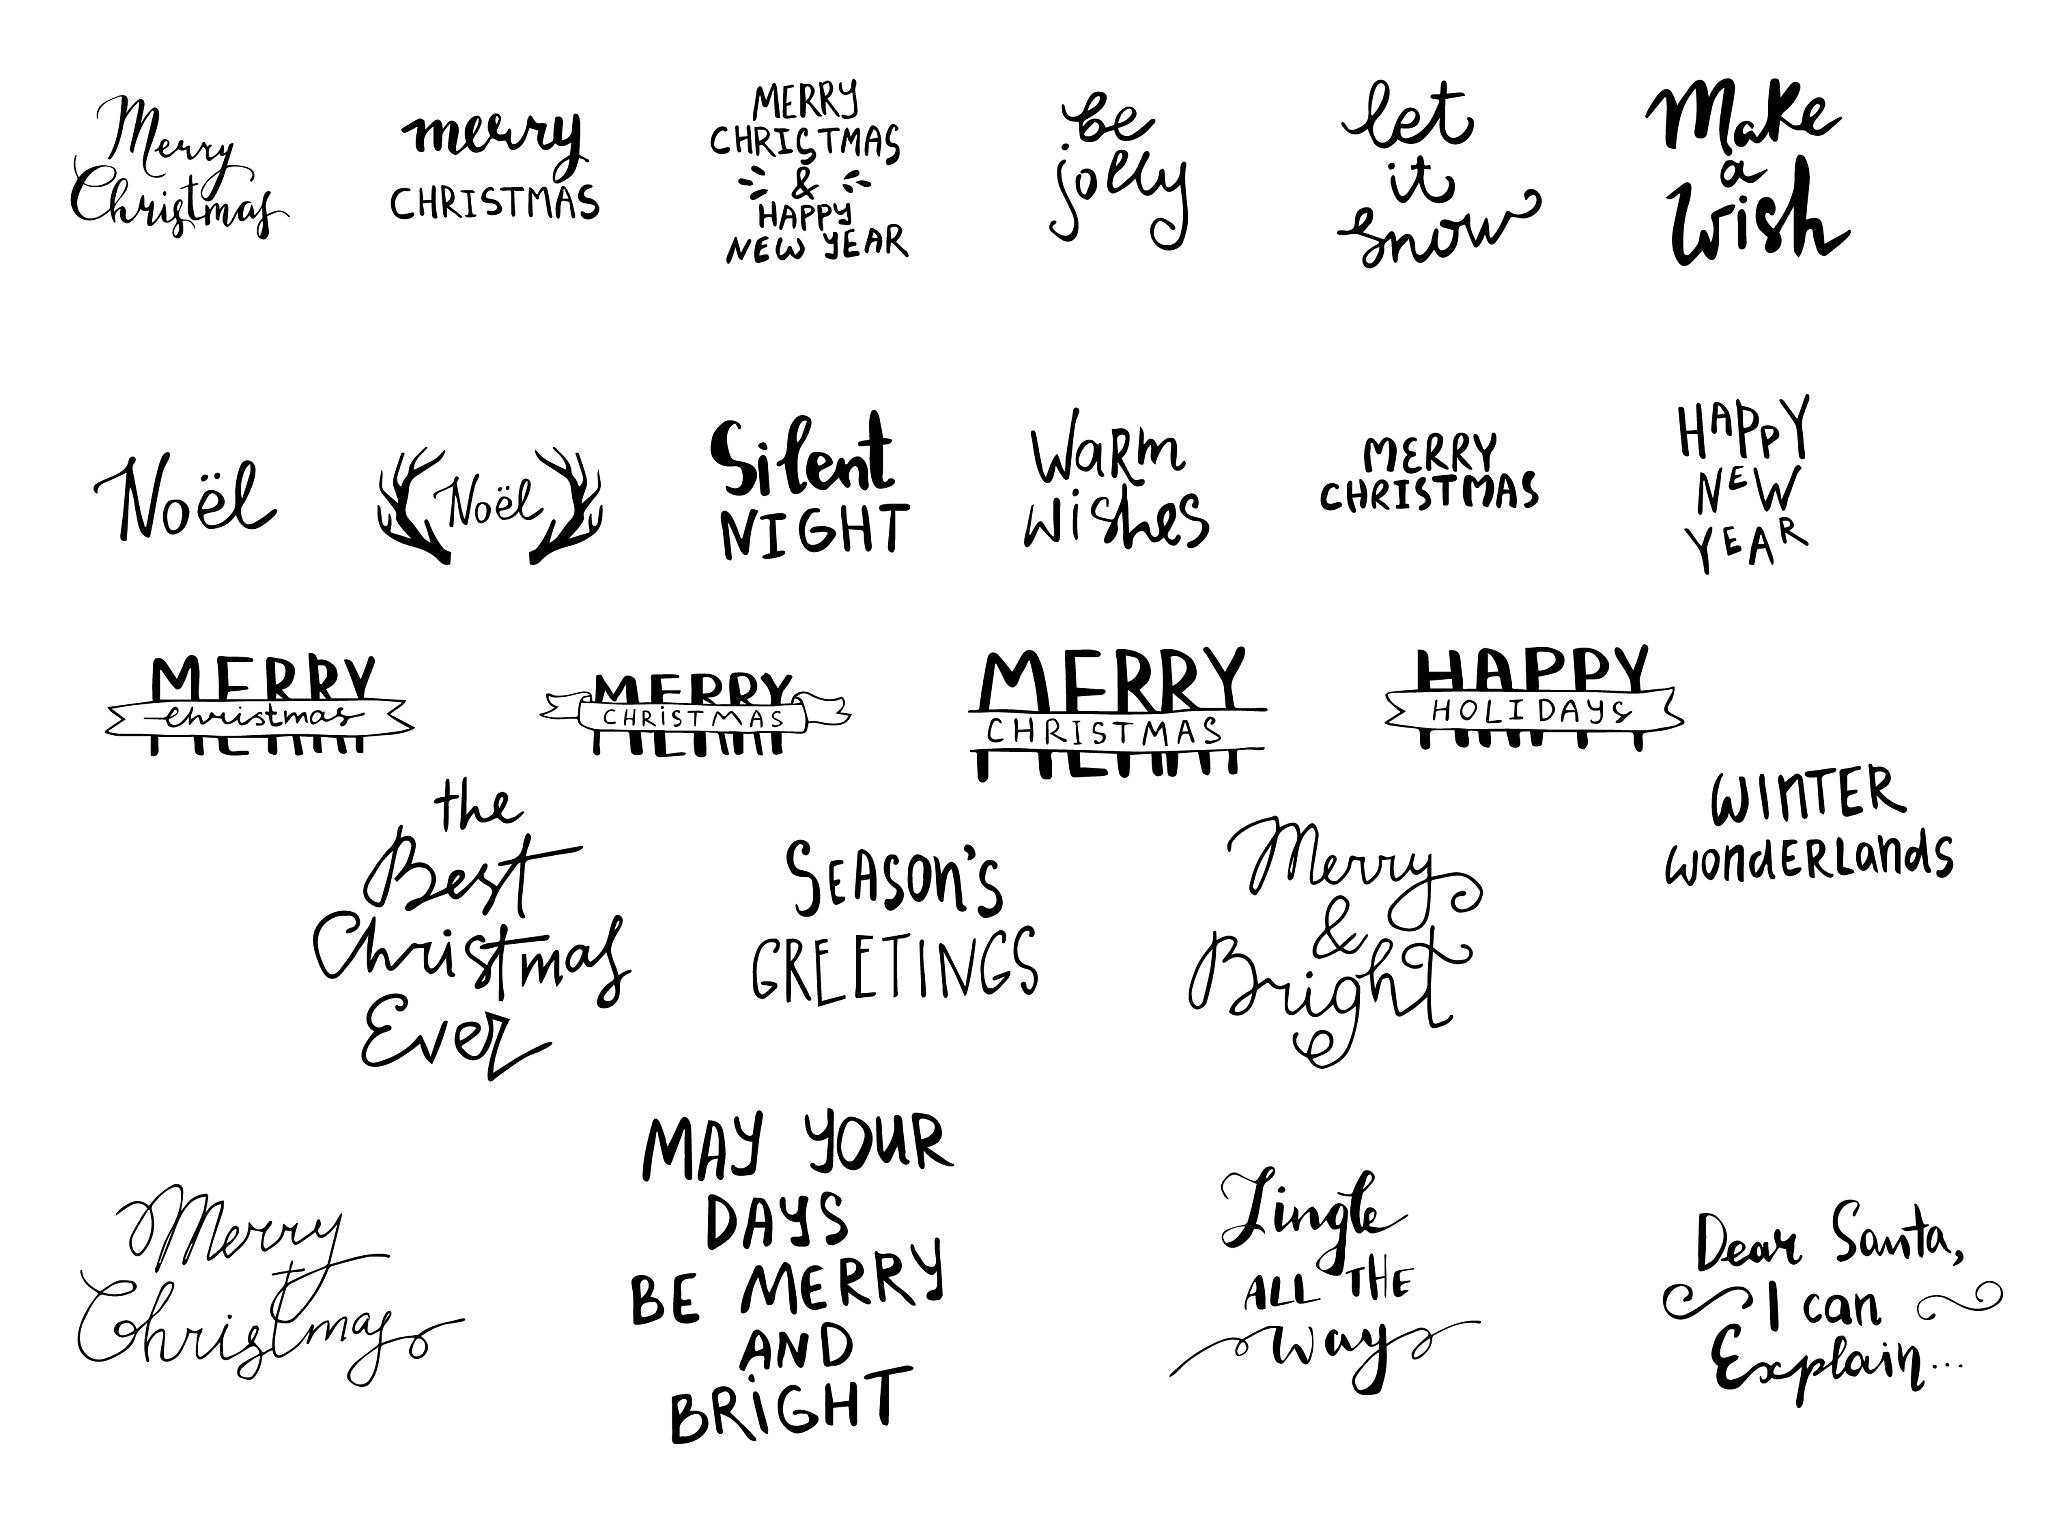 Merry
Christmas
merry
CHRISTMAS
MERRY
CHRISTMAS
&
HAPPY
NEW YEAR
be
jolly
let
it
snow
Make
a
Wish
Noël
Noël
Silent
NIGHT
Warm
wishes
MERRY
CHRISTMAS
HAPPY
NEW
YEAR
MERRY
christmas
MERRY
CHRiSTMAS
MERRY
CHRISTMAS
HAPPY
HOLIDAYS
the
Best
Christmas
Ever
SEASON'S
GREETINGS
Merry
&
Bright
WINTER
WONDERLANDS
Merry
Christmas
MAY YOUR
DAYS
BE MERRY
AND
BRiGHT
Jingle
ALL THE
way
Dear Santa,
I can
Explain...